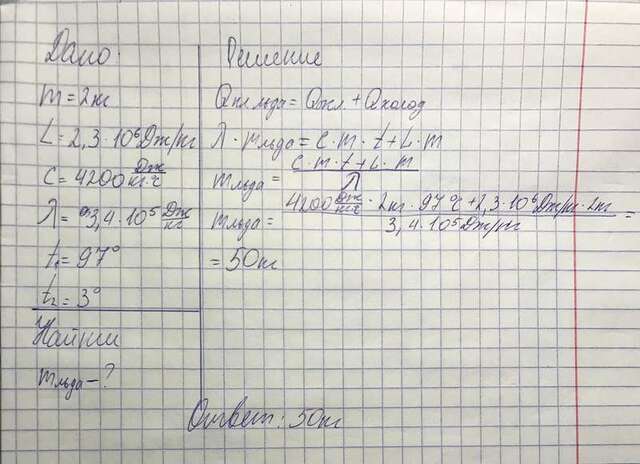 Дано:
m = 2кг
L = 2,3 · 10⁶ Дж/кг
C = 4200 Дж/кг·°C
λ = 3,4 · 10⁵ Дж/кг
t₁ = 97°
t₂ = 3°
Найти
mльда - ?
Решение
Qпл льда = Qкл + Qхолод
λ · mльда = C · m · t + L · m
mльда = C · m · t + L · m / λ
mльда = 4200 Дж/кг·°C · 2кг · 97°C + 2,3 · 10⁶ Дж/кг · 2кг / 3,4 · 10⁵ Дж/кг =
= 50кг
Ответ: 50кг